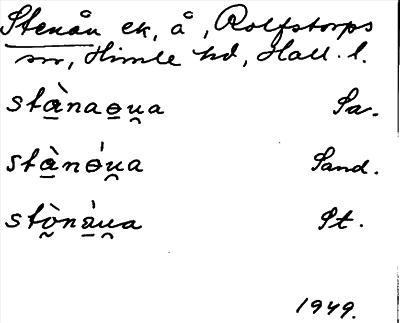 Stenån ek, å, Rolfstorps
sn, Himle hd, Hall. l.
stà̲naɵ̲u̮a Sa.
stà̲nɵ́u̮a Sand.
stò̮nà̲u̮a St.
1949.